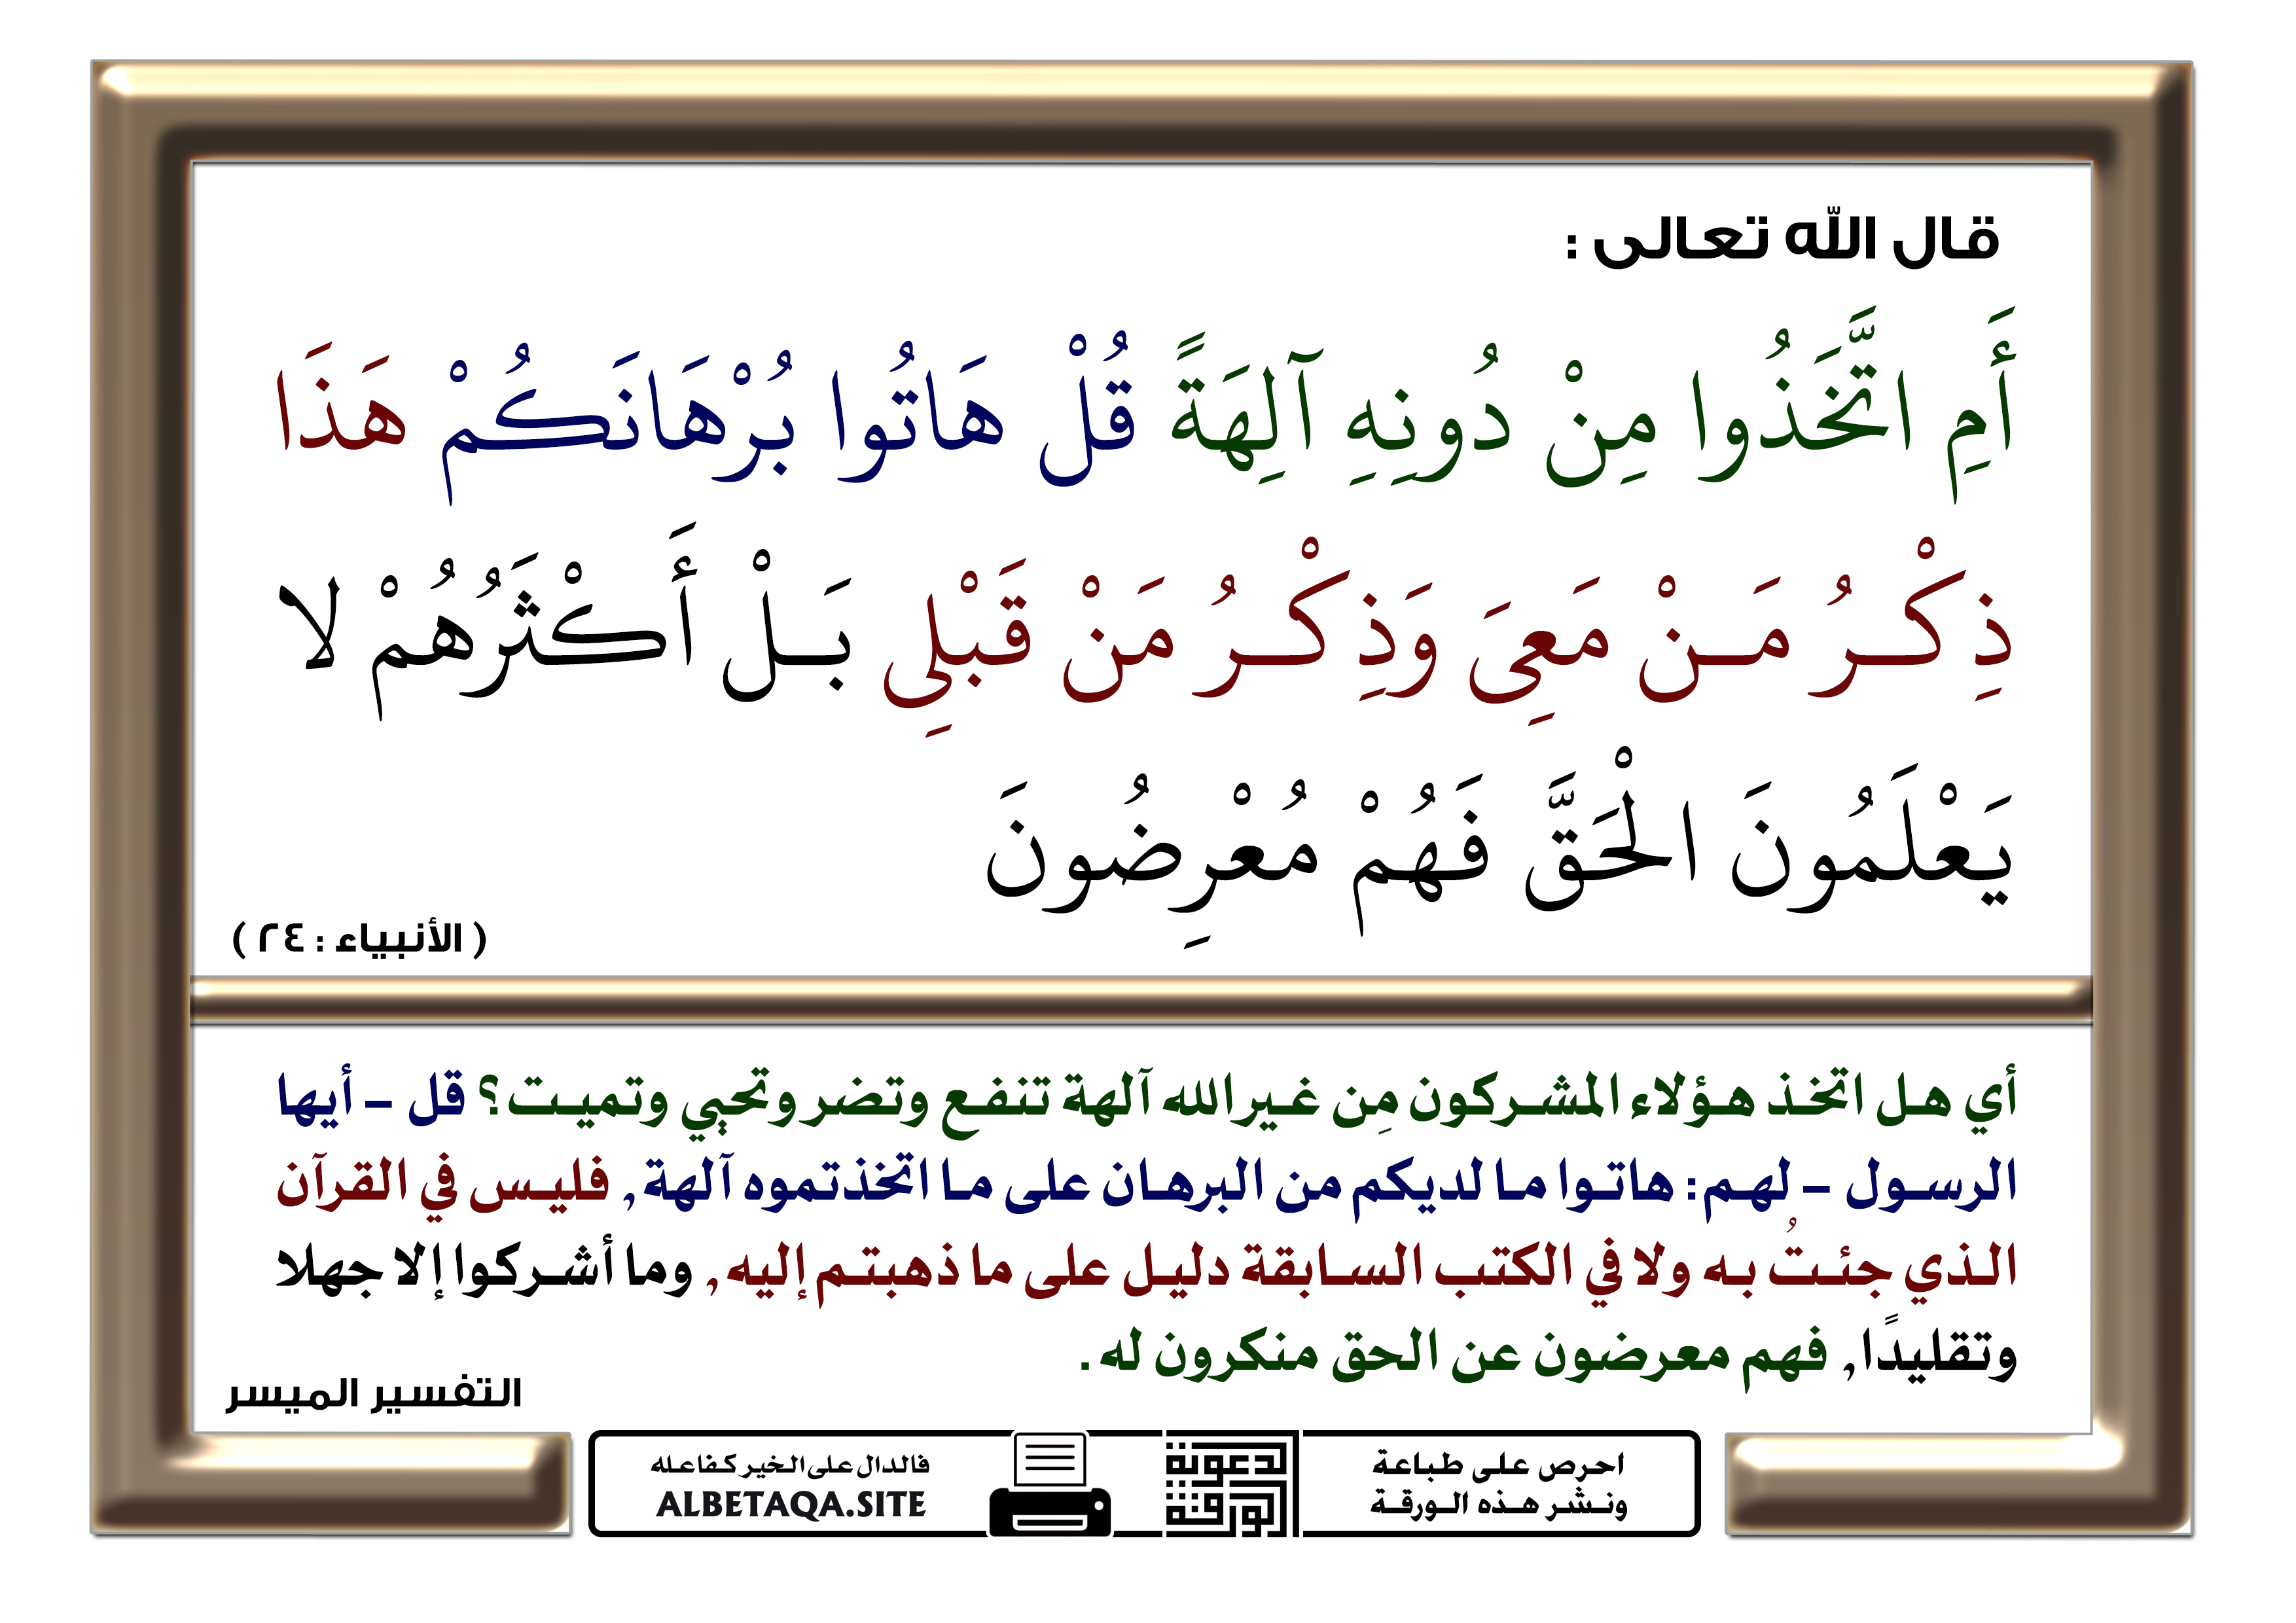 قال الله تعالى :
أَمِ اتَّخَذُوا مِنْ دُونِهِ آلِهَةً قُلْ هَاتُوا بُرْهَانَكُمْ هَذَا
ذِكْرُ مَنْ مَعِيَ وَذِكْرُ مَنْ قَبْلِي بَلْ أَكْثَرُهُمْ لا
يَعْلَمُونَ الْحَقَّ فَهُمْ مُعْرِضُونَ
( الأنبياء : ٢٤ )
أي هل اتخذ هؤلاء المشركون مِن غير الله آلهة تنفع وتضر وتحيي وتميت؟ قل – أيها
الرسول – لهم: هاتوا ما لديكم من البرهان على ما اتخذتموه آلهة, فليس في القرآن
الذي جئتُ به ولا في الكتب السابقة دليل على ما ذهبتم إليه, وما أشركوا إلا جهلا
وتقليدًا, فهم معرضون عن الحق منكرون له .
التفسير الميسر
احرص على طباعة
ونشر هذه الورقة
الدعوية
الورقة
فالدال على الخير كفاعله
ALBETAQA.SITE